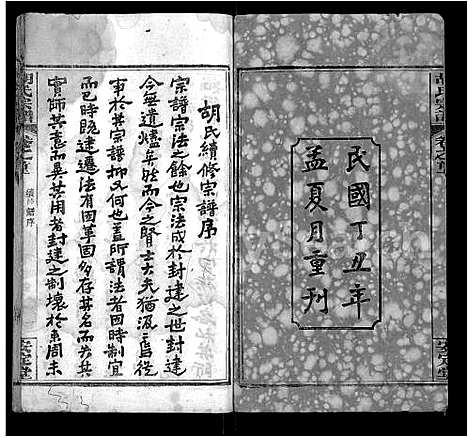 民國丁丑年
孟夏月重刊
胡氏續修宗譜序
宗譜宗法之餘也宗法成於封建之世封建
今無遺燼矣然而今之賢士大夫猶汲汲焉從
事於其宗譜抑又何也蓋所謂法者因時制宜
而已時既建遷法有因革固多存其名而去其
實師其意而異其用者封建之制壞於東周末